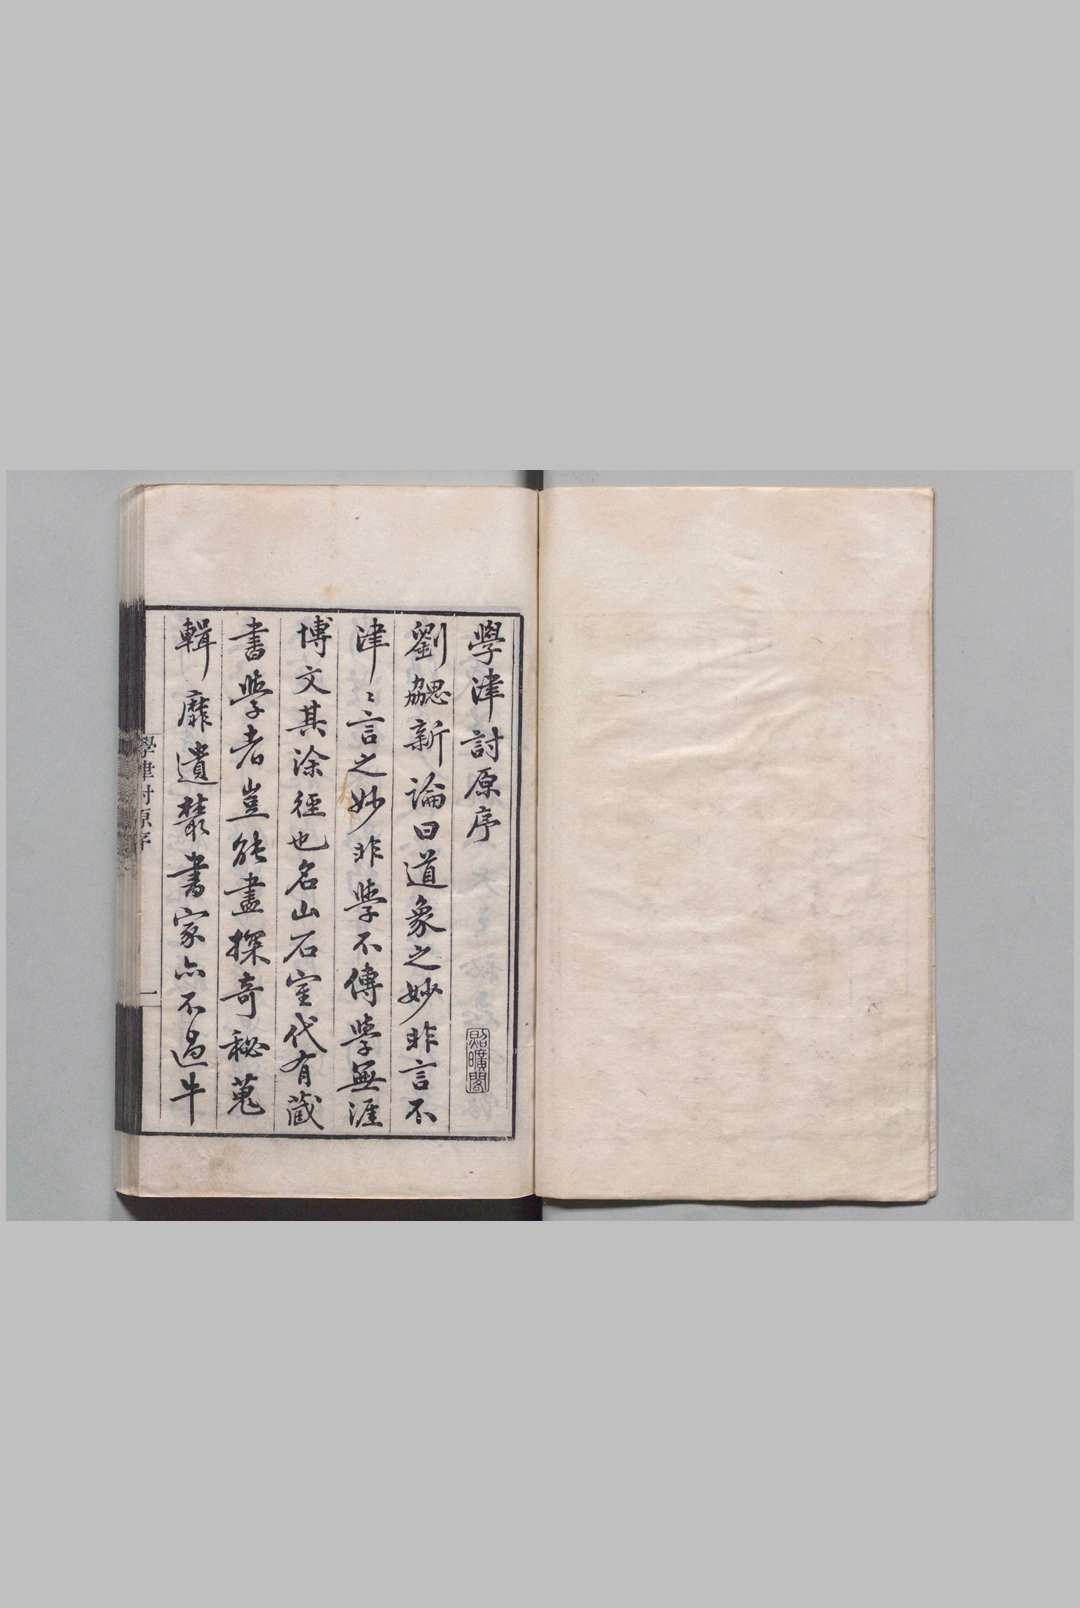 學津討原序
照曠閣
劉勰新論曰道象之妙非言不
津津言之妙非學不傳學無涯
博文其涂徑也名山石室代有藏
書學者豈能盡探奇秘蒐
輯靡遺叢書家亦不過牛
學津討原序
一